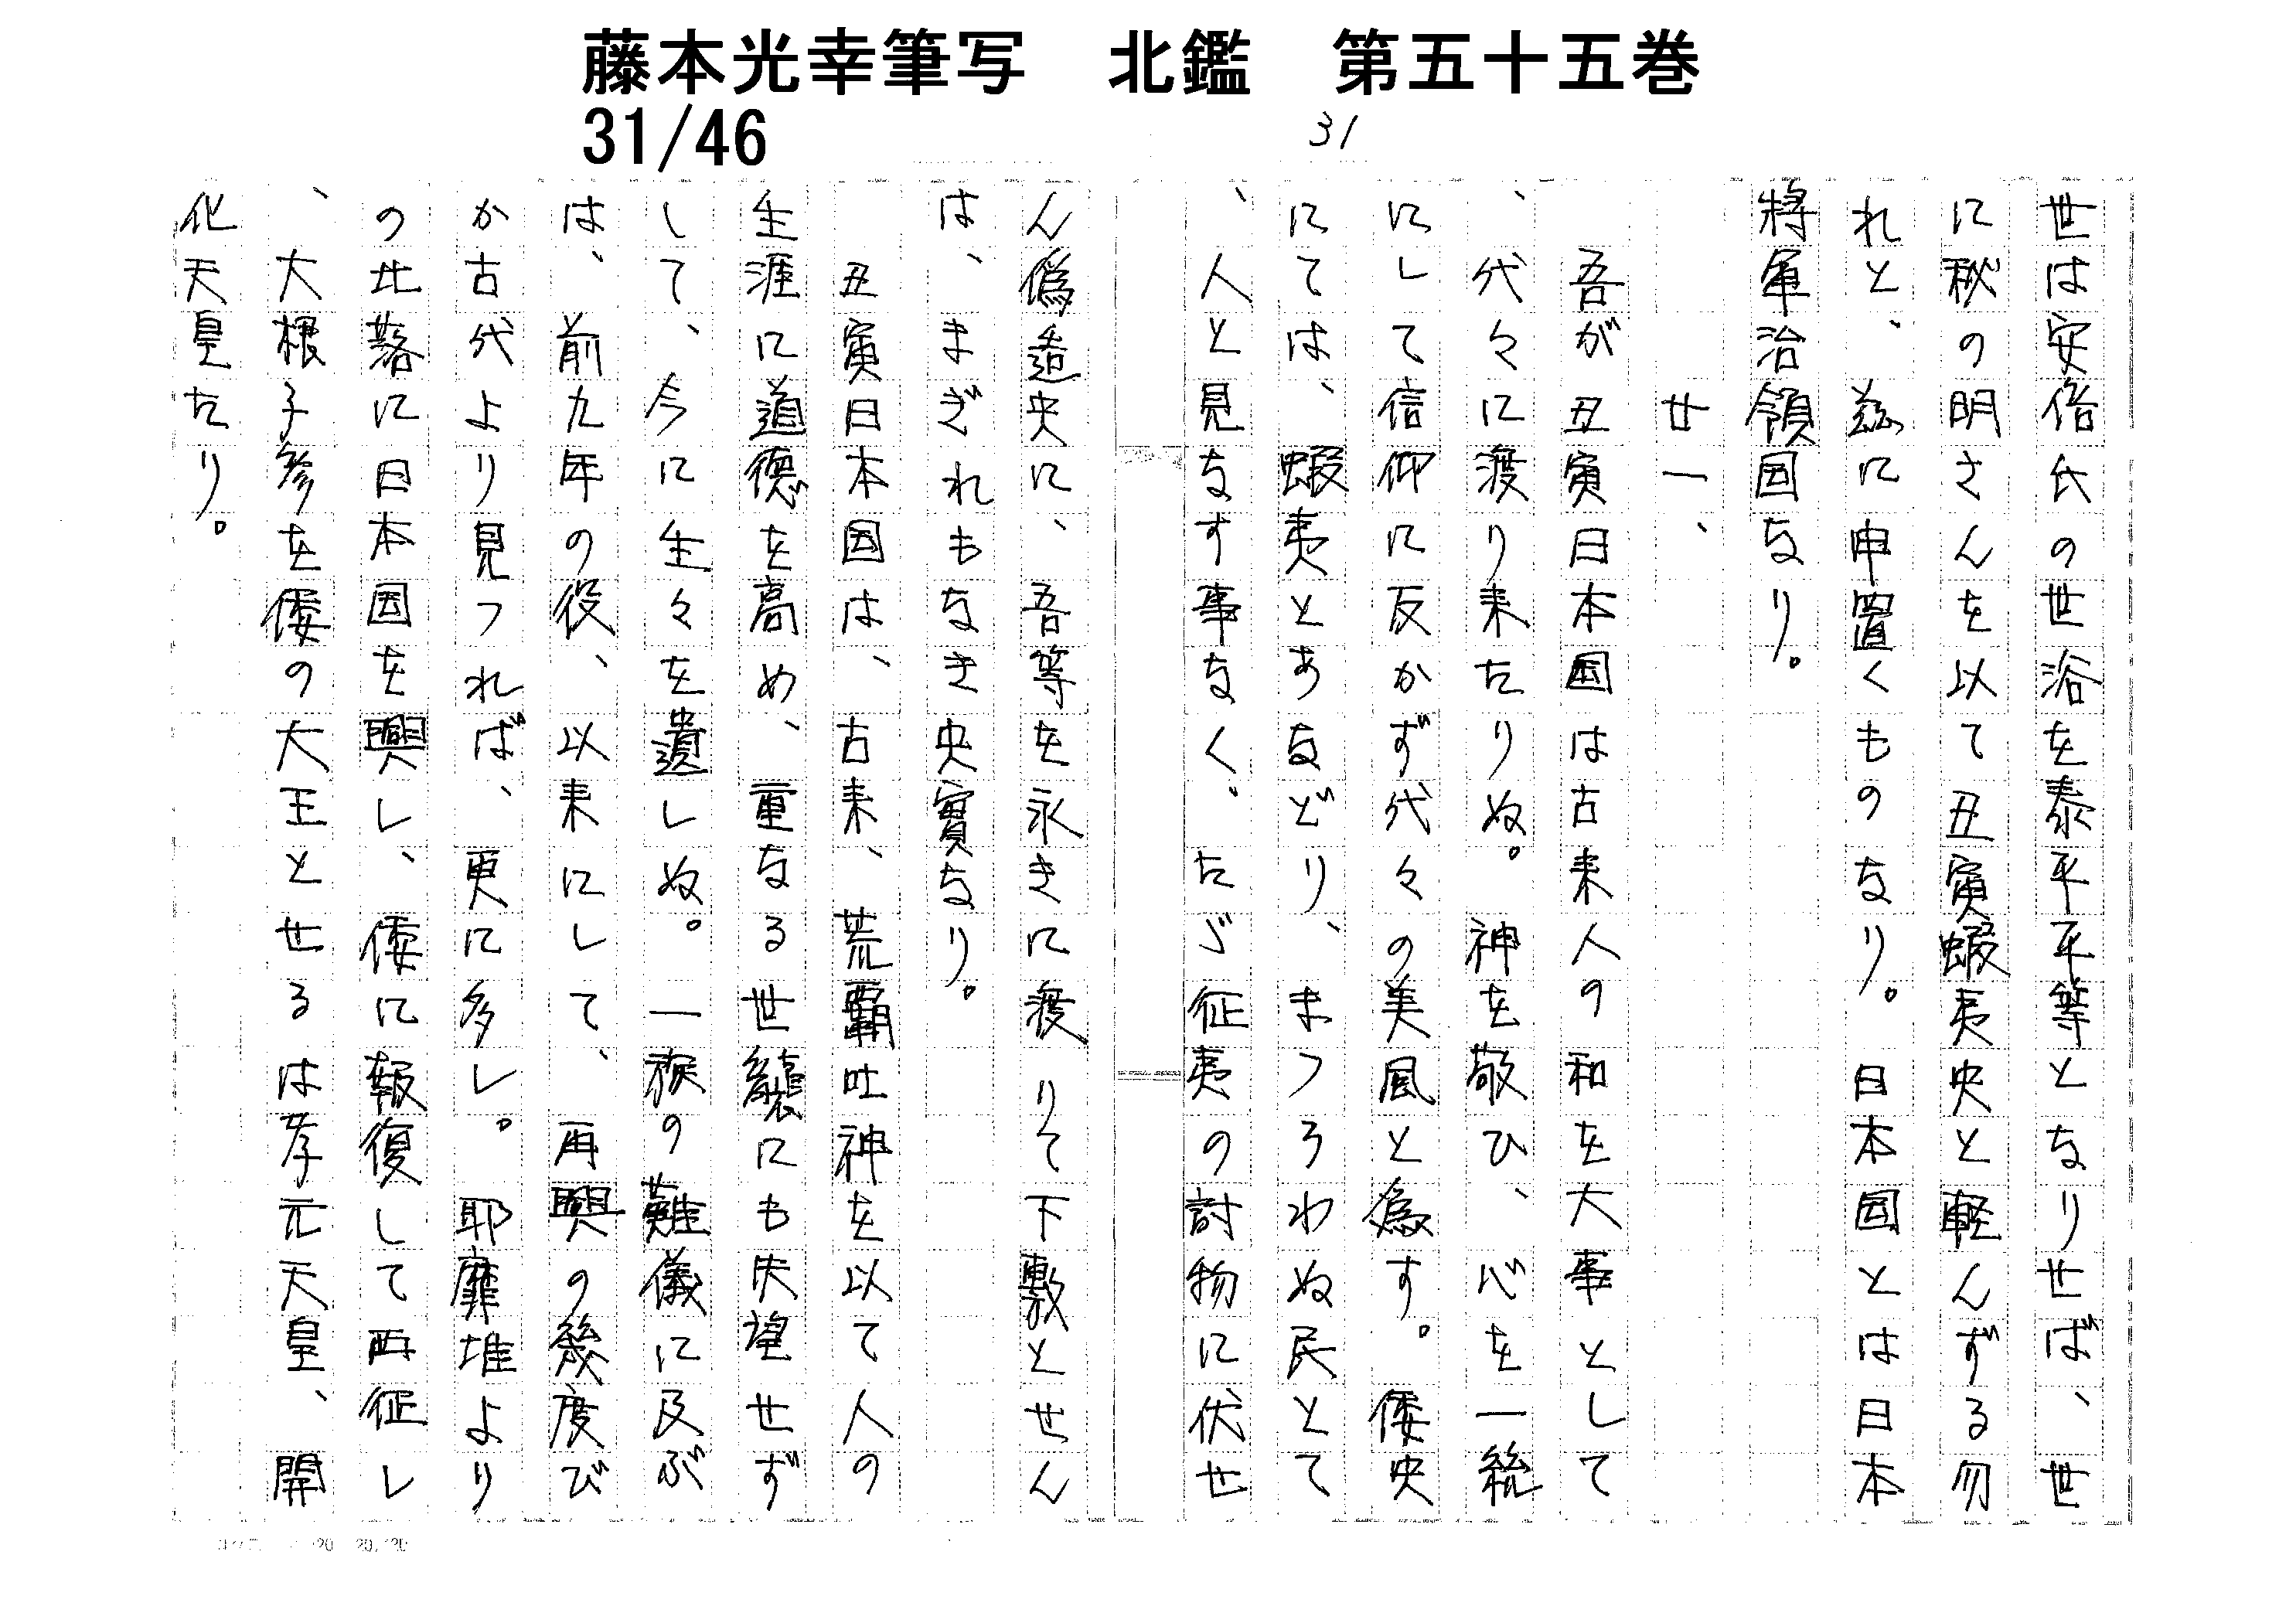 藤本光幸筆写　北鑑　第五十五巻
31/46
31
世は安倍氏の世浴を泰平平等となりせば、世
に秘の明さんを以て丑寅蝦夷史と軽んずる勿
れと、茲に申置くものなり。日本国とは日本
將軍治領国なり。
廿一、
吾が丑寅日本国は古来人の和を大事として
、代々に渡り来たりぬ。神を敬ひ、心を一統
にして信仰に反かず代々の美風と為す。倭史
にては、蝦夷とあなどり、まつろわぬ民とて
、人と見なす事なく。たゞ征夷の討物に伏せ
ん偽造史に、吾等を永きに渡りて下敷とせん
は、まぎれもなき史實なり。
丑寅日本国は、古来、荒覇吐神を以て人の
生涯に道徳を高め、重なる世襲にも失望せず
して、今に生々を遺しぬ。一族の難儀に及ぶ
は、前九年の役、以来にして、再興の幾度び
か古代より見つれば、更に多し。耶靡堆より
の北落に日本国を興し、倭に報復して再征し
、大根子彦を倭の大王とせるは孝元天皇、開
化天皇たり。